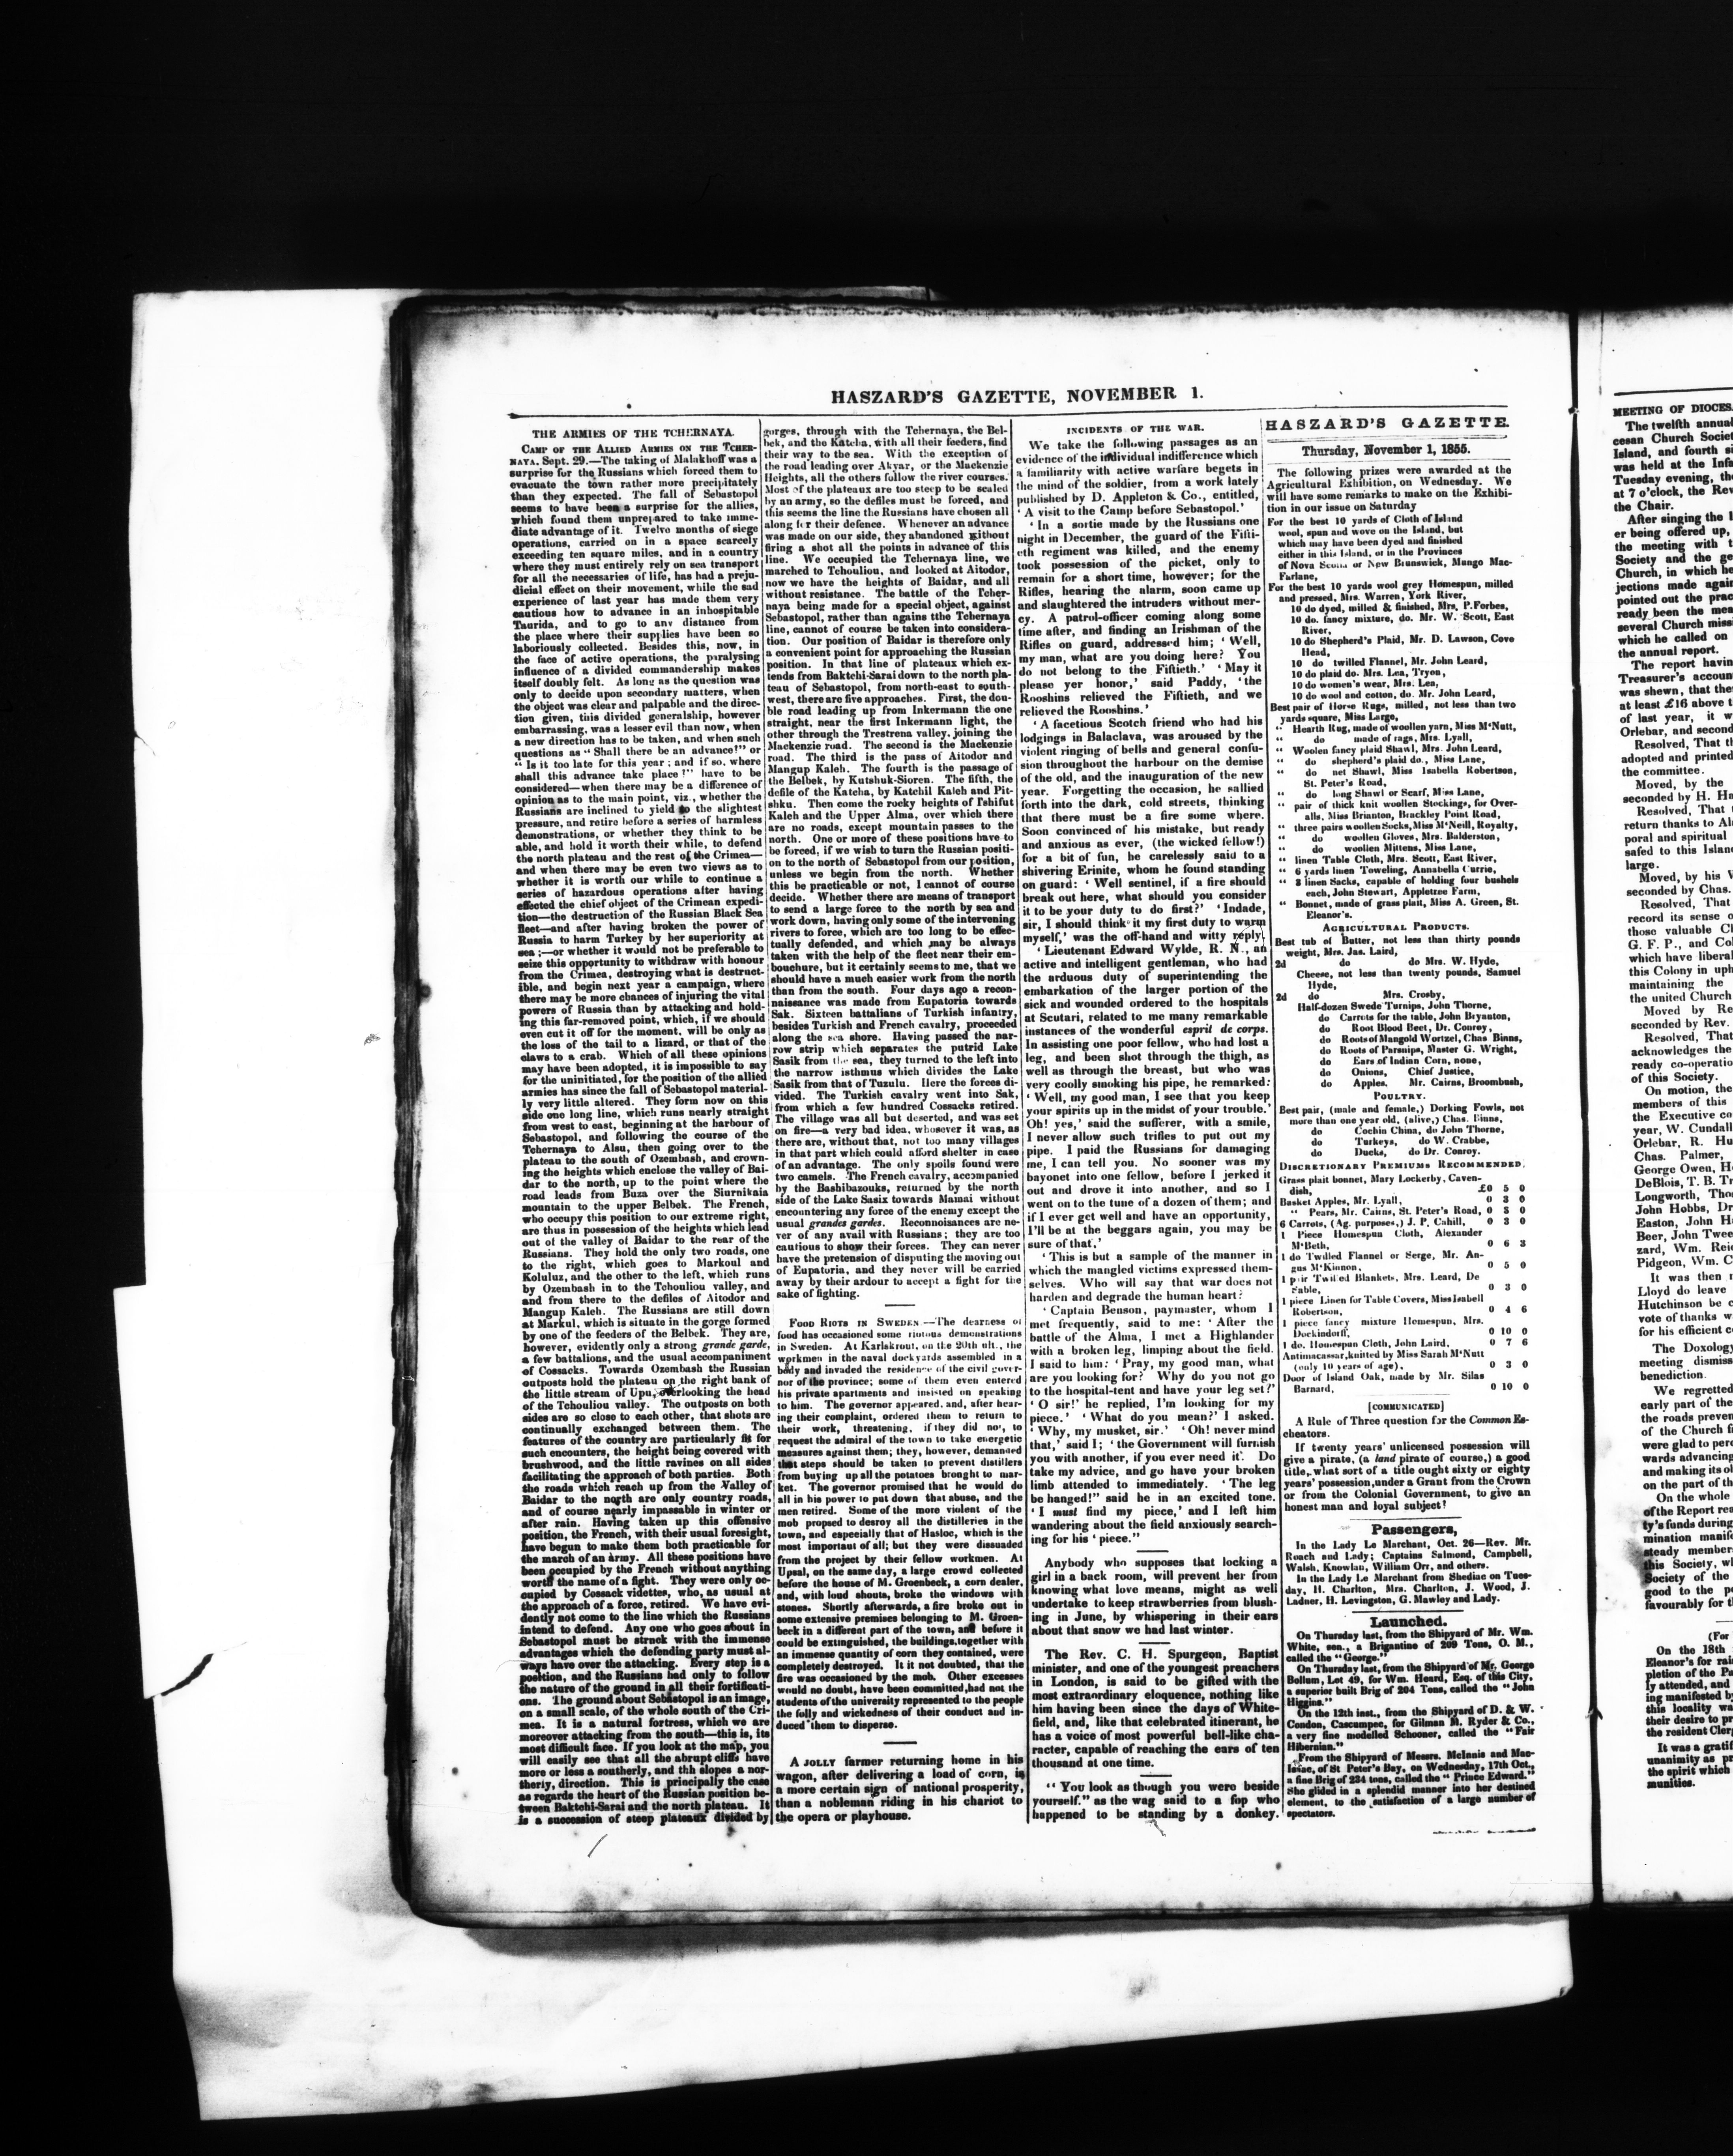 HASZARD'S GAZETTE, NOVEMBER 1.
THE ARMIES OF THE TCHERNAYA.
CAMP OF THE ALLIED ARMIES ON THE TCHER-
NAYA, Sept. 29.—The taking of Malakhoff was a
surprise for the Russians which forced them to
evacuate the town rather more precipitately
than they expected. The fall of Sebastopol
seems to have been a surprise for the allies,
which found them unprepared to take imme-
diate advantage of it. Twelve months of siege
operations, carried on in a space scarcely
exceeding ten square miles, and in a country
where they must entirely rely on sea transport
for all the necessaries of life, has had a preju-
dicial effect on their movement, while the sad
experience of last year has made them very
cautious how to advance in an inhospitable
Taurida, and to go to any distance from
the place where their supplies have been so
laboriously collected. Besides this, now, in
the face of active operations, the paralysing
influence of a divided commandership makes
itself doubly felt. As long as the question was
only to decide upon secondary matters, when
the object was clear and palpable and the direc-
tion given, this divided generalship, however
embarrassing, was a lesser evil than now, when
a new direction has to be taken, and when such
questions as "Shall there be an advance!" or
"Is it too late for this year; and if so, where
shall this advance take place!" have to be
considered—when there may be a difference of
opinion as to the main point, viz., whether the
Russians are inclined to yield to the slightest
pressure, and retire before a series of harmless
demonstrations, or whether they think to be
able, and hold it worth their while, to defend
the north plateau and the rest of the Crimea—
and when there may be even two views as to
whether it is worth our while to continue a
series of hazardous operations after having
effected the chief object of the Crimean expedi-
tion—the destruction of the Russian Black Sea
fleet—and after having broken the power of
Russia to harm Turkey by her superiority at
sea;—or whether it would not be preferable to
seize this opportunity to withdraw with honour
from the Crimea, destroying what is destruct-
ible, and begin next year a campaign, where
there may be more chances of injuring the vital
powers of Russia than by attacking and hold-
ing this far-removed point, which, if we should
even cut it off for the moment, will be only as
the loss of the tail to a lizard, or that of the
claws to a crab. Which of all these opinions
may have been adopted, it is impossible to say
for the uninitiated, for the position of the allied
armies has since the fall of Sebastopol material-
ly very little altered. They form now on this
side one long line, which runs nearly straight
from west to east, beginning at the harbour of
Sebastopol, and following the course of the
Tchernaya to Alsu, then going over to the
plateau to the south of Ozembash, and crown-
ing the heights which enclose the valley of Bai-
dar to the north, up to the point where the
road leads from Buza over the Siurnikaia
mountain to the upper Belbek. The French,
who occupy this position to our extreme right,
are thus in possession of the heights which lead
out of the valley of Baidar to the rear of the
Russians. They hold the only two roads, one
to the right, which goes to Markoul and
Koluluz, and the other to the left, which runs
by Ozembash in to the Tchouliou valley, and
and from there to the defiles of Aitodor and
Mangup Kaleh. The Russians are still down
at Markul, which is situate in the gorge formed
by one of the feeders of the Belbek. They are,
however, evidently only a strong grande garde,
a few battalions, and the usual accompaniment
of Cossacks. Towards Ozembash the Russian
outposts hold the plateau on the right bank of
the little stream of Upu, overlooking the head
of the Tchouliou valley. The outposts on both
sides are so close to each other, that shots are
continually exchanged between them. The
features of the country are particularly fit for
such encounters, the height being covered with
brushwood, and the little ravines on all sides
facilitating the approach of both parties. Both
the roads which reach up from the Valley of
Baidar to the north are only country roads,
and of course nearly impassable in winter or
after rain. Having taken up this offensive
position, the French, with their usual foresight,
have begun to make them both practicable for
the march of an army. All these positions have
been occupied by the French without anything
worth the name of a fight. They were only oc-
cupied by Cossack videttes, who, as usual at
the approach of a force, retired. We have evi-
dently not come to the line which the Russians
intend to defend. Any one who goes about in
Sebastopol must be struck with the immense
advantages which the defending party must al-
ways have over the attacking. Every step is a
position, and the Russians had only to follow
the nature of the ground in all their fortificati-
ons. The ground about Sebastopol is an image,
on a small scale, of the whole south of the Cri-
mea. It is a natural fortress, which we are
moreover attacking from the south—this is, its
most difficult face. If you look at the map, you
will easily see that all the abrupt cliffs have
more or less a southerly, and thh slopes a nor-
therly, direction. This is principally the case
as regards the heart of the Russian position be-
tween Baktchi-Sarai and the north plateau. It
is a succession of steep plateaux divided by
gorges, through with the Tchernaya, the Bel-
bek, and the Katcha, with all their feeders, find
their way to the sea. With the exception of
the road leading over Akyar, or the Mackenzie
Heights, all the others follow the river courses.
Most of the plateaux are too steep to be scaled
by an army, so the defiles must be forced, and
this seems the line the Russians have chosen all
along for their defence. Whenever an advance
was made on our side, they abandoned without
firing a shot all the points in advance of this
line. We occupied the Tchernaya line, we
marched to Tchouliou, and looked at Aitodor,
now we have the heights of Baidar, and all
without resistance. The battle of the Tcher-
naya being made for a special object, against
Sebastopol, rather than agains tthe Tchernaya
line, cannot of course be taken into considera-
tion. Our position of Baidar is therefore only
a convenient point for approaching the Russian
position. In that line of plateaux which ex-
tends from Baktchi-Sarai down to the north pla-
teau of Sebastopol, from north-east to south-
west, there are five approaches. First, the dou-
ble road leading up from Inkermann the one
straight, near the first Inkermann light, the
other through the Trestrena valley, joining the
Mackenzie road. The second is the Mackenzie
road. The third is the pass of Aitodor and
Mangup Kaleh. The fourth is the passage of
the Belbek, by Kutshuk-Sioren. The fifth, the
defile of the Katcha, by Katchil Kaleh and Pit-
shku. Then come the rocky heights of Tshifut
Kaleh and the Upper Alma, over which there
are no roads, except mountain passes to the
north. One or more of these positions have to
be forced, if we wish to turn the Russian positi-
on to the north of Sebastopol from our position,
unless we begin from the north. Whether
this be practicable or not, I cannot of course
decide. Whether there are means of transport
to send a large force to the north by sea and
work down, having only some of the intervening
rivers to force, which are too long to be effec-
tually defended, and which may be always
taken with the help of the fleet near their em-
bouchure, but it certainly seems to me, that we
should have a much easier work from the north
than from the south. Four days ago a recon-
naissance was made from Eupatoria towards
Sak. Sixteen battalians of Turkish infantry,
besides Turkish and French cavalry, proceeded
along the sea shore. Having passed the nar-
row strip which separates the putrid Lake
Sasik from the sea, they turned to the left into
the narrow isthmus which divides the Lake
Sasik from that of Tuzulu. Here the forces di-
vided. The Turkish cavalry went into Sak,
from which a few hundred Cossacks retired.
The village was all but deserted, and was set
on fire—a very bad idea, whosever it was, as
there are, without that, not too many villages
in that part which could afford shelter in case
of an advantage. The only spoils found were
two camels. The French cavalry, accompanied
by the Bashibazouks, returned by the north
side of the Lake Sasix towards Mamai without
encountering any force of the enemy except the
usual grandes gardes. Reconnoisances are ne-
ver of any avail with Russians; they are too
cautious to show their forces. They can never
have the pretension of disputing the moving out
of Eupatoria, and they never will be carried
away by their ardour to accept a fight for the
sake of fighting.
FOOD RIOTS IN SWEDEN.—The dearness of
food has occasioned some riotous demonstrations
in Sweden. At Karlskrout, on the 20th ult., the
workmen in the naval dockyards assembled in a
body and invaded the residence of the civil gover-
nor of the province; some of them even entered
his private apartments and insisted on speaking
to him. The governor appeared, and, after hear-
ing their complaint, ordered them to return to
their work, threatening, if they did not, to
request the admiral of the town to take energetic
measures against them; they, however, demanded
that steps should be taken to prevent distillers
from buying up all the potatoes brought to mar-
ket. The governor promised that he would do
all in his power to put down that abuse, and the
men retired. Some of the more violent of the
mob propsed to desroy all the distilleries in the
town, and especially that of Hasloc, which is the
most important of all; but they were dissuaded
from the project by their fellow workmen. At
Upsal, on the same day, a large crowd collected
before the house of M. Groenbeck, a corn dealer,
and, with loud shouts, broke the windows with
stones. Shortly afterwards, a fire broke out in
some extensive premises belonging to M. Groen-
beck in a different part of the town, and before it
could be extinguished, the buildings, together with
an immense quantity of corn they contained, were
completely destroyed. It it not doubted, that the
fire was occasioned by the mob. Other excesses
would no doubt, have been committed, had not the
students of the university represented to the people
the folly and wickedness of their conduct and in-
duced them to disperse.
A JOLLY farmer returning home in his
wagon, after delivering a load of corn, is
a more certain sign of national prosperity,
than a nobleman riding in his chariot to
the opera or playhouse.
INCIDENTS OF THE WAR.
We take the following passages as an
evidence of the individual indifference which
a familiarity with active warfare begets in
the mind of the soldier, from a work lately
published by D. Appleton & Co., entitled,
'A visit to the Camp before Sebastopol.'
'In a sortie made by the Russians one
night in December, the guard of the Fifti-
eth regiment was killed, and the enemy
took possession of the picket, only to
remain for a short time, however; for the
Rifles, hearing the alarm, soon came up
and slaughtered the intruders without mer-
cy. A patrol-officer coming along some
time after, and finding an Irishman of the
Rifles on guard, addressed him; 'Well,
my man, what are you doing here? You
do not belong to the Fiftieth.' 'May it
please yer honor,' said Paddy, 'the
Rooshins relieved the Fiftieth, and we
relieved the Rooshins.'
'A facetious Scotch friend who had his
lodgings in Balaclava, was aroused by the
violent ringing of bells and general confu-
sion throughout the harbour on the demise
of the old, and the inauguration of the new
year. Forgetting the occasion, he sallied
forth into the dark, cold streets, thinking
that there must be a fire some where.
Soon convinced of his mistake, but ready
and anxious as ever, (the wicked fellow!)
for a bit of fun, he carelessly said to a
shivering Erinite, whom he found standing
on guard: 'Well sentinel, if a fire should
break out here, what should you consider
it to be your duty to do first?' 'Indade,
sir, I should think it my first duty to warm
myself,' was the off-hand and witty reply.
'Lieutenant Edward Wylde, R. N., an
active and intelligent gentleman, who had
the arduous duty of superintending the
embarkation of the larger portion of the
sick and wounded ordered to the hospitals
at Scutari, related to me many remarkable
instances of the wonderful esprit de corps.
In assisting one poor fellow, who had lost a
leg, and been shot through the thigh, as
well as through the breast, but who was
very coolly smoking his pipe, he remarked:
'Well, my good man, I see that you keep
your spirits up in the midst of your trouble.'
Oh! yes,' said the sufferer, with a smile,
I never allow such trifles to put out my
pipe. I paid the Russians for damaging
me, I can tell you. No sooner was my
bayonet into one fellow, before I jerked it
out and drove it into another, and so I
went on to the tune of a dozen of them; and
if I ever get well and have an opportunity,
I'll be at the beggars again, you may be
sure of that.'
'This is but a sample of the manner in
which the mangled victims expressed them-
selves. Who will say that war does not
harden and degrade the human heart?
'Captain Benson, paymaster, whom I
met frequently, said to me: 'After the
battle of the Alma, I met a Highlander
with a broken leg, limping about the field.
I said to him: 'Pray, my good man, what
are you looking for? Why do you not go
to the hospital-tent and have your leg set?'
'O sir!' he replied, I'm looking for my
piece.' 'What do you mean?' I asked.
'Why, my musket, sir.' 'Oh! never mind
that,' said I; 'the Government will furnish
you with another, if you ever need it. Do
take my advice, and go have your broken
limb attended to immediately. 'The leg
be hanged!" said he in an excited tone.
'I must find my piece,' and I left him
wandering about the field anxiously search-
ing for his 'piece."
Anybody who supposes that locking a
girl in a back room, will prevent her from
knowing what love means, might as well
undertake to keep strawberries from blush-
ing in June, by whispering in their ears
about that snow we had last winter.
The Rev. C. H. Spurgeon, Baptist
minister, and one of the youngest preachers
in London, is said to be gifted with the
most extraordinary eloquence, nothing like
him having been since the days of White-
field, and, like that celebrated itinerant, he
has a voice of most powerful bell-like cha-
racter, capable of reaching the ears of ten
thousand at one time.
"You look as though you were beside
yourself." as the wag said to a fop who
happened to be standing by a donkey.
HASZARD'S GAZETTE.
Thursday, November 1, 1855.
The following prizes were awarded at the
Agricultural Exhibition, on Wednesday. We
will have some remarks to make on the Exhibi-
tion in our issue on Saturday
For the best 10 yards of Cloth of Island
wool, spun and wove on the Island, but
which may have been dyed and finished
either in this Island, or in the Provinces
of Nova Scotia or New Brunswick, Mungo Mac-
Farlane,
For the best 10 yards wool grey Homespun, milled
and pressed, Mrs. Warren, York River,
10 do dyed, milled & finished, Mrs. P. Forbes,
10 do. fancy mixture, do. Mr. W. Scott, East
River,
10 do Shepherd's Plaid, Mr. D. Lawson, Cove
Head,
10 do twilled Flannel, Mr. John Leard,
10 do plaid do. Mrs. Lea, Tryon,
10 do women's wear, Mrs. Lea,
10 do wool and cotton, do. Mr. John Leard,
Best pair of Horse Rugs, milled, not less than two
yards square, Miss Large,
" Hearth Rug, made of woollen yarn, Miss M'Nutt,
" do made of rags, Mrs. Lyall,
" Woolen fancy plaid Shawl, Mrs. John Leard,
" do shepherd's plaid do., Miss Lane,
" do net Shawl, Miss Isabella Robertson,
St. Peter's Road,
" do long Shawl or Scarf, Miss Lane,
" pair of thick knit woollen Stockings, for Over-
alls, Miss Brianton, Brackley Point Road,
" three pairs woollen Socks, Miss M'Neill, Royalty,
" do woollen Gloves, Mrs. Balderston,
" do woollen Mittens, Miss Lane,
" linen Table Cloth, Mrs. Scott, East River,
" 6 yards linen Toweling, Annabella Currie,
" 3 linen Sacks, capable of holding four bushels
each, John Stewart, Appletree Farm,
" Bonnet, made of grass plait, Miss A. Green, St.
Eleanor's.
AGRICULTURAL PRODUCTS.
Best tub of Butter, not less than thirty pounds
weight, Mrs. Jas. Laird,
2d do do Mrs. W. Hyde,
Cheese, not less than twenty pounds, Samuel
Hyde,
2d do Mrs. Crosby,
Half-dozen Swede Turnips, John Thorne,
do Carrots for the table, John Bryanton,
do Root Blood Beet, Dr. Conroy,
do Roots of Mangold Wortzel, Chas Binns,
do Roots of Parsnips, Master G. Wright,
do Ears of Indian Corn, none,
do Onions, Chief Justice,
do Apples, Mr. Cairns, Broombush,
POULTRY.
Best pair, (male and female,) Dorking Fowls, not
more than one year old, (alive,) Chas. Binns,
do Cochin China, do John Thorne,
do Turkeys, do W. Crabbe,
do Ducks, do Dr. Conroy.
DISCRETIONARY PREMIUMS RECOMMENDED.
Grass plait bonnet, Mary Lockerby, Caven-
dish, £0 5 0
Basket Apples, Mr. Lyall, 0 3 0
" Pears, Mr. Cairns, St. Peter's Road, 0 3 0
6 Carrots, (Ag. purposes,) J. P. Cahill, 0 3 0
1 Piece Homespun Cloth, Alexander
M'Beth, 0 6 3
1 do Twilled Flannel or Serge, Mr. An-
gus M'Kinnon, 0 5 0
1 pair Twilled Blankets, Mrs. Leard, De
Sable, 0 3 0
1 piece Linen for Table Covers, Miss Isabell
Robertson, 0 4 6
1 piece fancy mixture Homespun, Mrs.
Dockindorff, 0 10 0
1 do. Homespun Cloth, John Laird, 0 7 6
Antimacassar, knitted by Miss Sarah M'Nutt
(only 10 years of age), 0 3 0
Door of Island Oak, made by Mr. Silas
Barnard, 0 10 0
[COMMUNICATED]
A Rule of Three question for the Common Es-
cheators.
If twenty years' unlicensed possession will
give a pirate, (a land pirate of course,) a good
title, what sort of a title ought sixty or eighty
years' possession, under a Grant from the Crown
or from the Colonial Government, to give an
honest man and loyal subject?
Passengers,
In the Lady Le Marchant, Oct. 26—Rev. Mr.
Roach and Lady; Captains Salmond, Campbell,
Walsh, Knowlan, William Orr, and others.
In the Lady Le Marchant from Shediac on Tues-
day, H. Charlton, Mrs. Charlton, J. Wood, J.
Ladner, H. Levingston, G. Mawley and Lady.
Launched.
On Thursday last, from the Shipyard of Mr. Wm.
White, sen., a Brigantine of 209 Tons, O. M.,
called the "George."
On Thursday last, from the Shipyard of Mr. George
Bollum, Lot 49, for Wm. Heard, Esq. of this City,
a superior built Brig of 204 Tons, called the "John
Higgins."
On the 12th inst., from the Shipyard of D. & W.
Condon, Cascumpec, for Gilman M. Ryder & Co.,
a very fine modelled Schooner, called the "Fair
Hibernian."
From the Shipyard of Messrs. McInnis and Mac-
Isaac, of St Peter's Bay, on Wednesday, 17th Oct.,
a fine Brig of 234 tons, called the "Prince Edward."
She glided in a splendid manner into her destined
element, to the satisfaction of a large number of
spectators.
MEETING OF DIOCES
The twelfth annual
cesan Church Societ
Island, and fourth si
was held at the Infa
Tuesday evening, the
at 7 o'clock, the Rev
the Chair.
After singing the l
er being offered up,
the meeting with t
Society and the ge
Church, in which he
jections made again
pointed out the prac
ready been the mea
several Church missi
which he called on
the annual report.
The report havin
Treasurer's accoun
was shewn, that the
at least £16 above t
of last year, it w
Orlebar, and second
Resolved, That th
adopted and printed
the committee.
Moved, by the
seconded by H. Ha
Resolved, That
return thanks to Al
poral and spiritual
safed to this Island
large.
Moved, by his V
seconded by Chas.
Resolved, That
record its sense o
those valuable Cl
G. F. P., and Col
which have liberal
this Colony in uph
maintaining the
the united Church
Moved by Re
seconded by Rev.
Resolved, That
acknowledges the
ready co-operatio
of this Society.
On motion, the
members of this
the Executive co
year, W. Cundall
Orlebar, R. Hu
Chas. Palmer,
George Owen, H
DeBlois, T. B. Tr
Longworth, Tho
John Hobbs, Dr
Easton, John H
Beer, John Twee
zard, Wm. Reid
Pidgeon, Wm. C
It was then r
Lloyd do leave
Hutchinson be c
vote of thanks w
for his efficient c
The Doxology
meeting dismiss
benediction.
We regretted
early part of the
the roads preven
of the Church fi
were glad to perc
wards advancing
and making its ol
on the part of th
On the whole
of the Report rea
ty's funds during
mination manife
steady member
this Society, wh
Society of the
good to the pe
favourably for t
(For
On the 18th
Eleanor's for rai
pletion of the Pa
ly attended, and
ing manifested by
this locality wa
their desire to pr
the resident Cler
It was a gratif
unanimity as pr
the spirit which
munities.